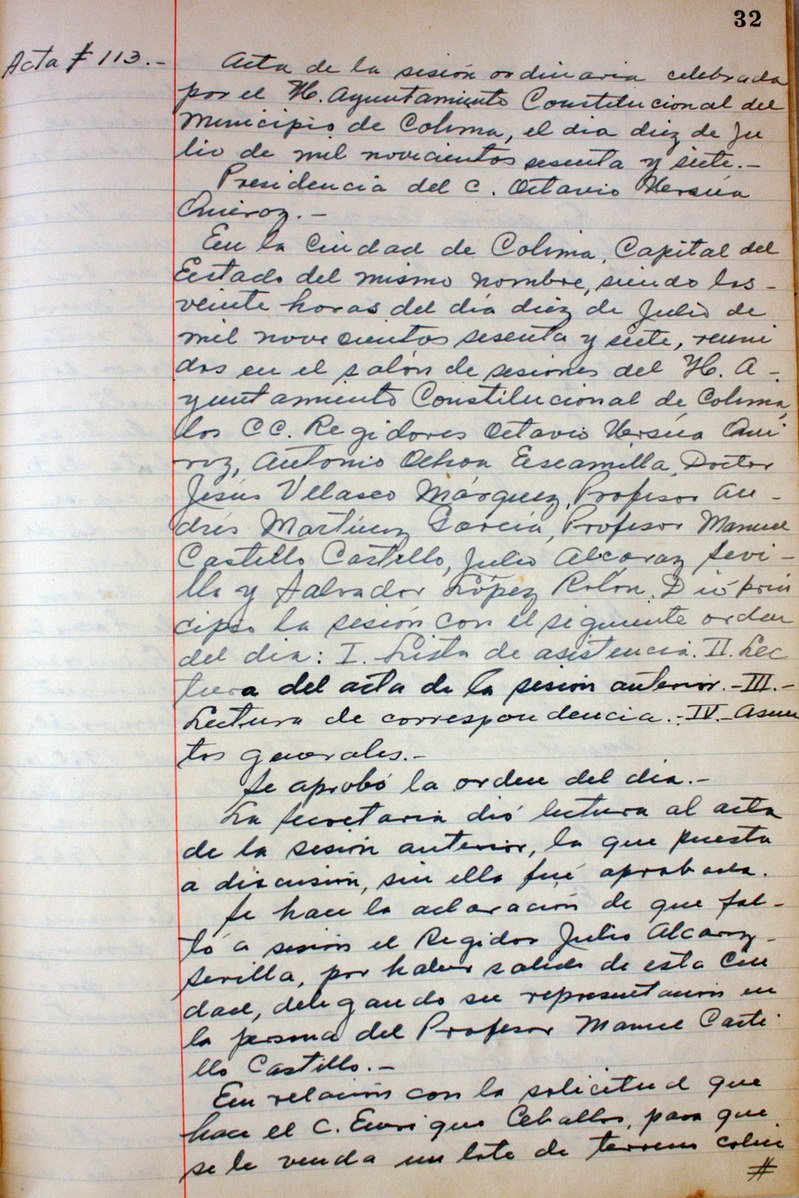 32
Acta # 113.-
Acta de la sesión ordinaria celebrada
por el H. Ayuntamiento Constitucional del
Municipio de Colima, el dia diez de Ju
lio de mil novecientos sesenta y siete.-
Presidencia del C. Octavio Ursúa
Quiroz.-
En la Ciudad de Colima, Capital del
Estado del mismo nombre, siendo las-
veinte horas del día diez de Julio de
mil novecientos sesenta y siete, reuni
dos en el salón de sesiones del H. A-
yuntamiento Constitucional de Colima,
los CC. Regidores Octavio Ursúa Qui
roz, Antonio Ochoa Escamilla, Doctor
Jesús Velasco Márquez, Profesor An-
drés Martínez García, Profesor Manuel
Castillo Castillo, Julio Alcaraz Sevi-
lla y Salvador López Rolón. Dió prin
cipio la sesión con el siguiente orden
del dia: I. Lista de asistencia. II. Lec
tura del acta de la sesión anterior.-III.-
Lectura de correspondencia.-IV.-Asun
tos generales.-
Se aprobó la orden del dia.-
La Secretaria dió lectura al acta
de la sesión anterior, la que puesta
a discusión, sin ella fué aprobada.
Se hace la aclaración de que fal-
tó a sesión el Regidor Julio Alcaraz-
Sevilla, por haber salido de esta Ciu
dad, delegando su representación en
la persona del Profesor Manuel Casti
llo Castillo.-
En relación con la solicitud que
hace el C. Enrique Ceballos, para que
se le venda un lote de terreno colin
#